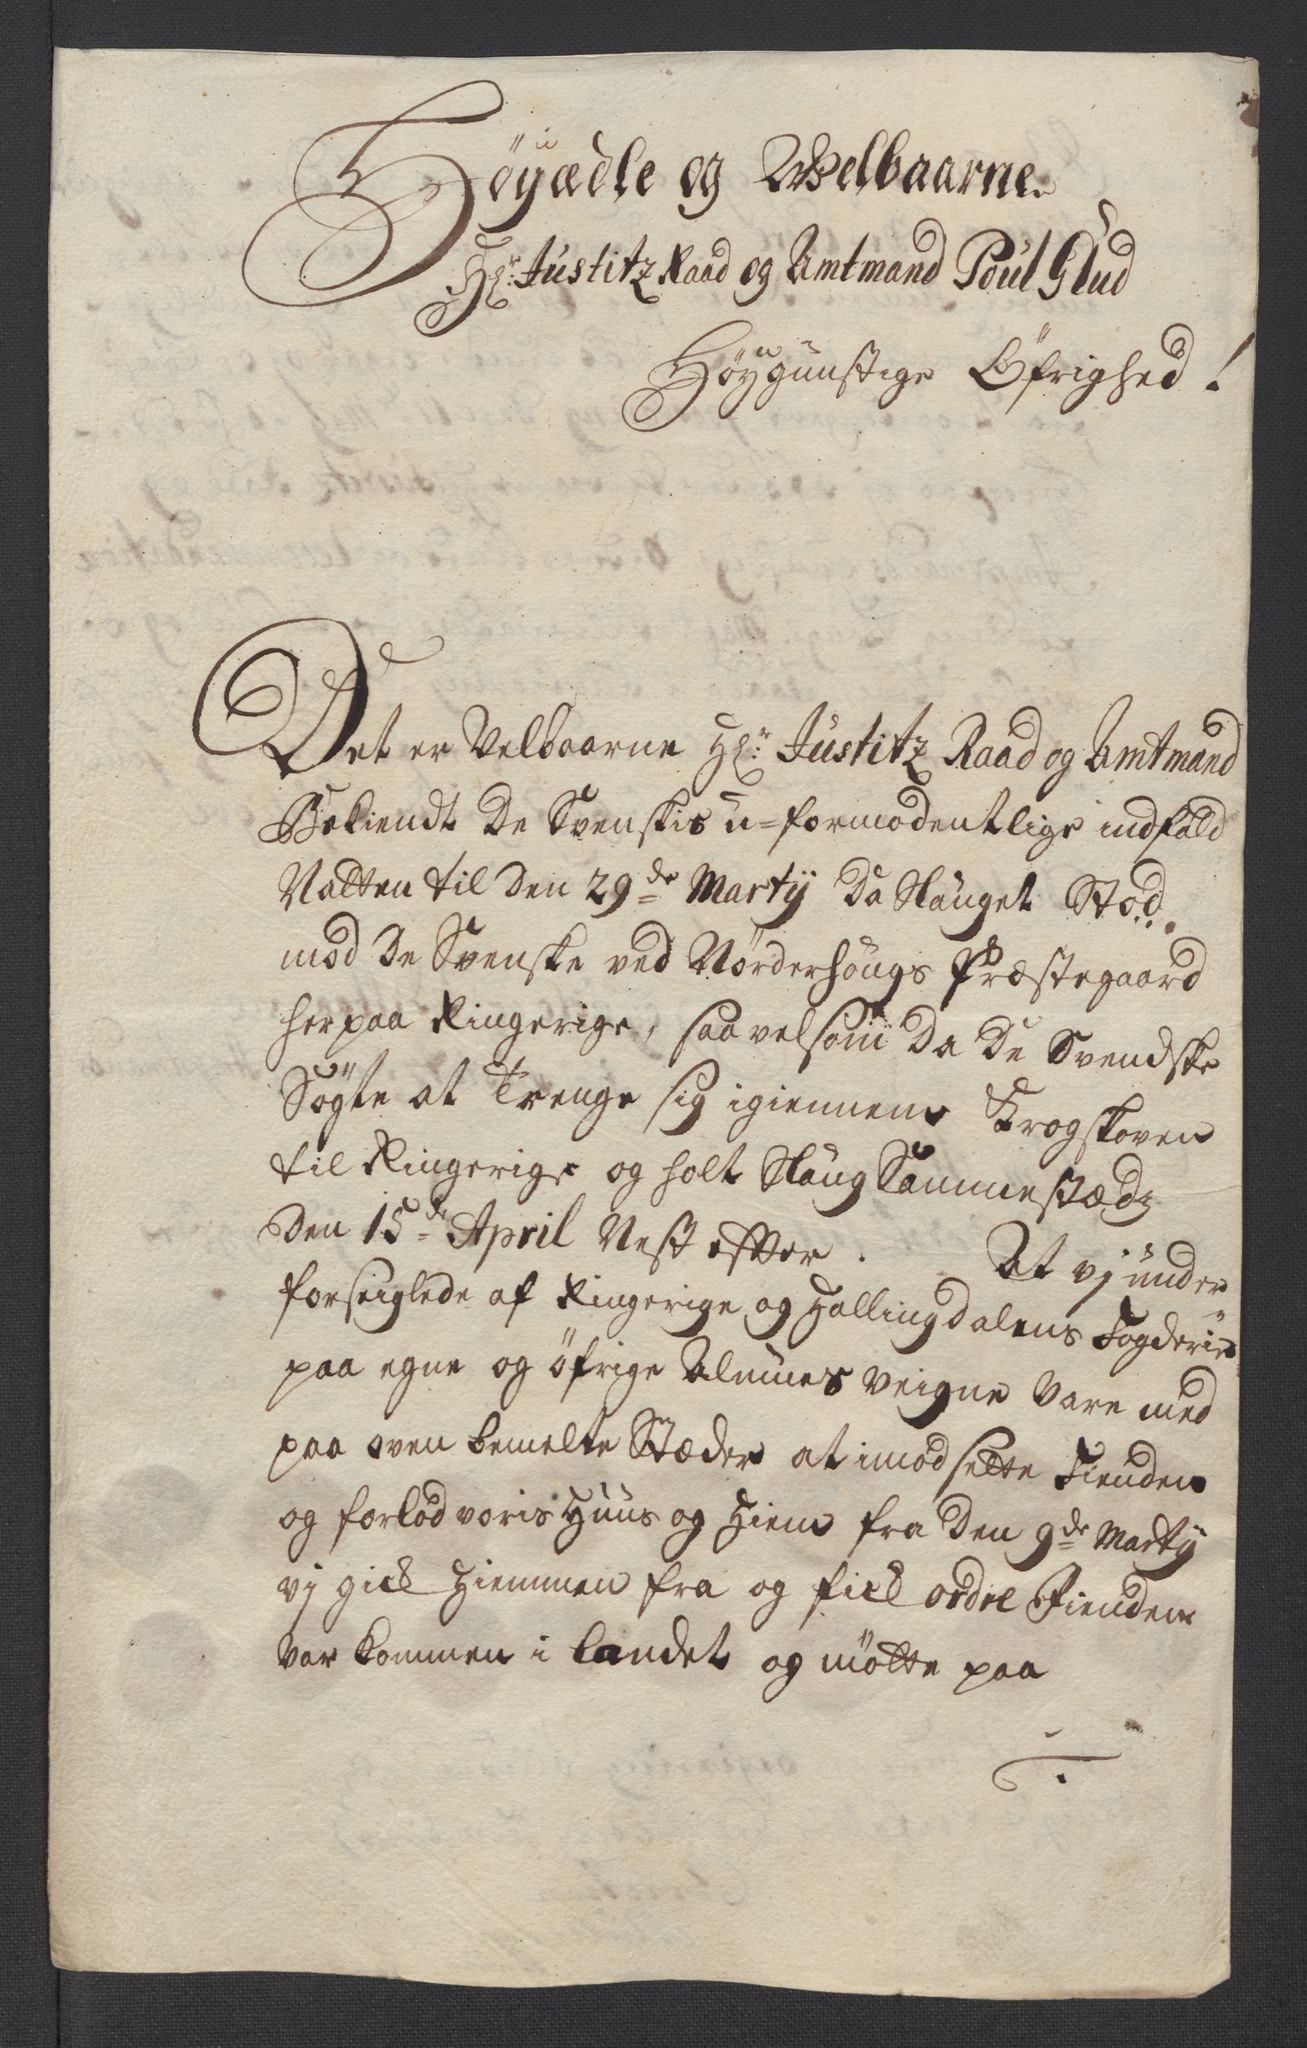 Höyædle og Welbaarne
Hr: Justitz Raad og Amtmand Poul Glud
Höygunstige Öfrighed!
Det er Velbaarne Hr: Justitz Raad og Amtmand
Bekiendt De Svenskis u=formodentlige indfald
Natten til den 29de Marty Da Slauget Stod
mod De Svenske ved Nörderhougs Præstegaard
her paa Ringerige, saavelsom Da De Svendske
Sögte at Trenge sig igiennem Krogskoven
til Ringerige og holt Slaug Sammestædz
den 15de April Nest effter. At vj under
forseiglede af Ringerige og Hallingdalens Fogderie
paa egne og öfrige Almues Veigne Vare med
paa oven bemelte Stæder at imodsette Fienden
og forlod voris Huus og Hiem fra den 9de Marty
vj gick Hiemmen fra og fick ordre Fienden
var kommen i landet og mötte paa